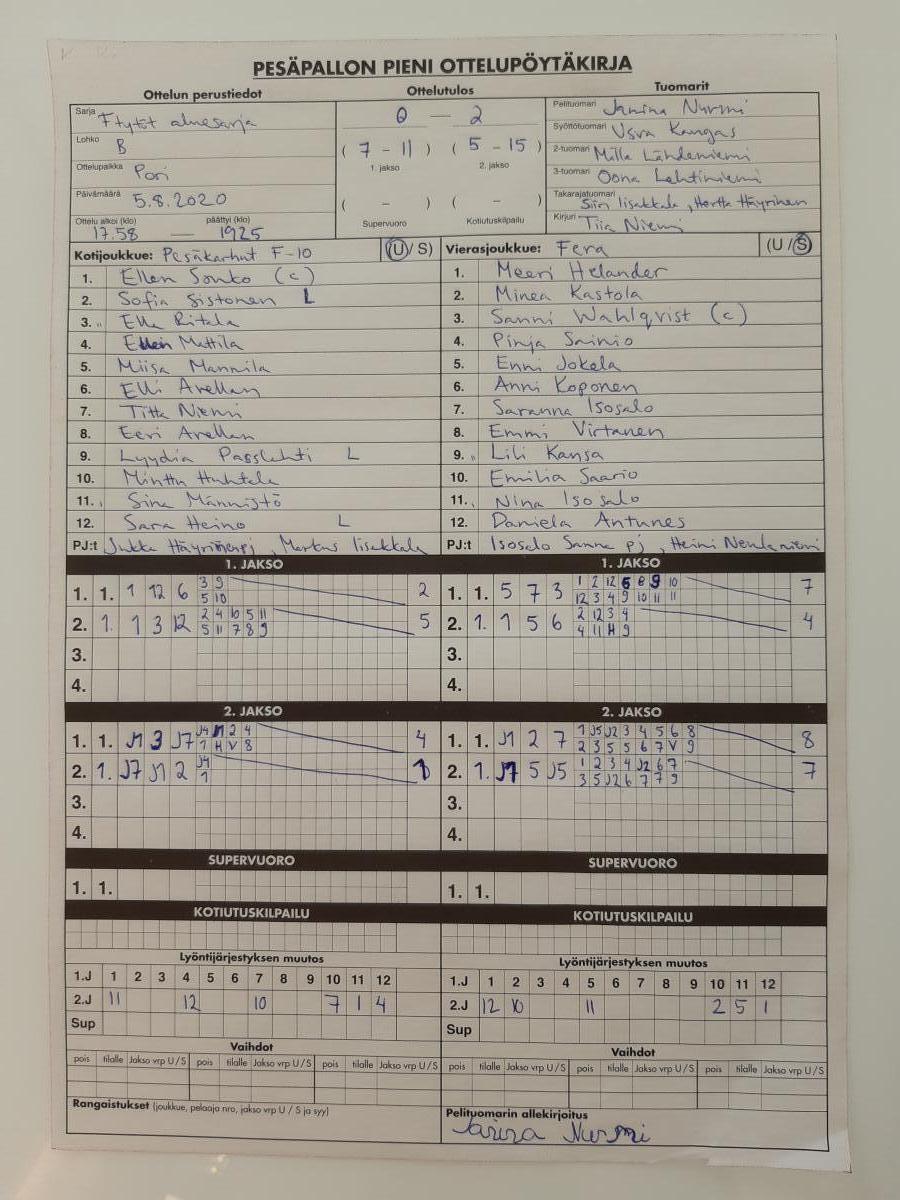 PESÄPALLON PIENI OTTELUPÖYTÄKIRJA
Ottelun perustiedot
Sarja Ftytöt aluesarja
Lohko B
Ottelupaikka Pori
Päivämäärä 5.8.2020
Ottelu alkoi (klo) päättyi (klo)
17.58 — 1925
Ottelutulos
0 — 2
( 7 - 11 ) ( 5 - 15 )
1. jakso 2. jakso
( - ) ( - )
Supervuoro Kotiutuskilpailu
Tuomarit
Pelituomari Janina Nurmi
Syöttötuomari Veera Kangas
2-tuomari Milla Lähdeniemi
3-tuomari Oona Lehtiniemi
Takarajatuomari
Siiri Iisakkala, Hertta Häyrinen
Kirjuri Tiia Niemi
Kotijoukkue: Pesäkarhut F-10 (U/S)
1. Ellen Sonko (c)
2. Sofia Sistonen L
3. Ella Ritala
4. Ellen Mattila
5. Miisa Mannila
6. Elli Arellan
7. Titta Niemi
8. Eeri Arellan
9. Lyydia Passlehti L
10. Minttu Huhtala
11. Sina Männistö
12. Sara Heino L
PJ:t Jukka Häyrinen pj, Markus Iisakkala
Vierasjoukkue: Fera (U/S)
1. Meeri Helander
2. Minea Kastola
3. Sanni Wahlqvist (c)
4. Pinja Sainio
5. Enni Jokela
6. Anni Koponen
7. Saranna Isosalo
8. Emmi Virtanen
9. Lili Kansa
10. Emilia Saario
11. Nina Isosalo
12. Daniela Antunes
PJ:t Isosalo Sanna pj, Heini Nenlaniemi
1. JAKSO
1. 1. 1 12 6 3 9 2
5 10
2. 1. 1 3 12 2 4 10 5 11 5
5 11 7 8 9
3.
4.
1. JAKSO
1. 1. 5 7 3 1 2 12 6 8 9 10 7
12 3 4 9 10 11 11
2. 1. 1 5 6 2 12 3 4 4
4 11 H 9
3.
4.
2. JAKSO
1. 1. J1 3 J7 J4 J1 2 4 4
1 H V 8
2. 1. J7 J1 2 J4 1
1
3.
4.
2. JAKSO
1. 1. J1 2 7 1 J5 J2 3 4 5 6 8 8
2 3 5 5 6 7 V 9
2. 1. J7 5 J5 1 2 3 4 J2 6 7 7
3 5 J2 6 7 7 9
3.
4.
SUPERVUORO
1. 1.
SUPERVUORO
1. 1.
KOTIUTUSKILPAILU
KOTIUTUSKILPAILU
Lyöntijärjestyksen muutos
1.J 1 2 3 4 5 6 7 8 9 10 11 12
2.J 11 12 10 7 1 4
Sup
Lyöntijärjestyksen muutos
1.J 1 2 3 4 5 6 7 8 9 10 11 12
2.J 12 10 11 2 5 1
Sup
Vaihdot
pois tilalle Jakso vrp U/S pois tilalle Jakso vrp U/S pois tilalle Jakso vrp U/S
Vaihdot
pois tilalle Jakso vrp U/S pois tilalle Jakso vrp U/S pois tilalle Jakso vrp U/S
Rangaistukset (joukkue, pelaaja nro, jakso vrp U / S ja syy)
Pelituomarin allekirjoitus
Janina Nurmi